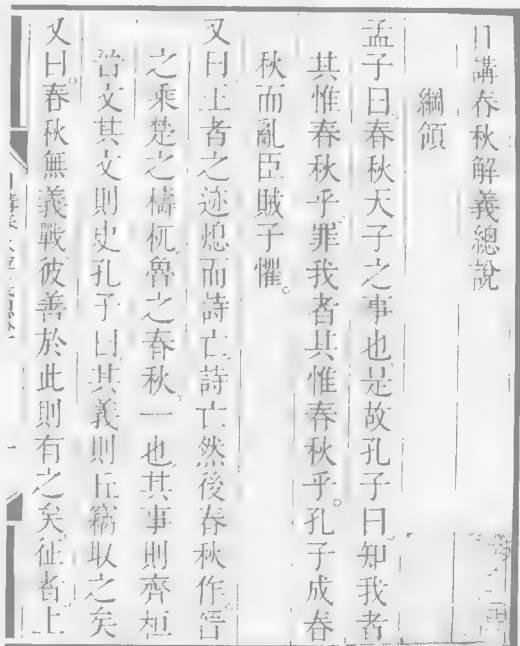 日講春秋解義總說
綱領
孟子曰。春秋天子之事也是故孔子曰。知我者
其惟春秋乎。罪我者其惟春秋乎。孔子成春
秋而亂臣賊子懼。
又曰王者之迹熄而詩亡。詩亡然後春秋作。晉
之乘楚之檮杌。魯之春秋。一也。其事則齊桓
晉文其文則史孔子曰。其義則丘竊取之矣
又曰。春秋無義戰。彼善於此則有之矣。征者。上